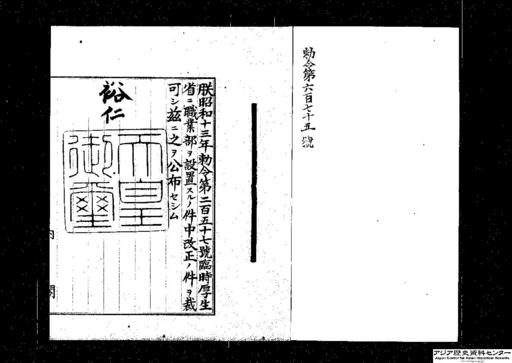 勅令第六百七十五號
朕昭和十三年勅令第二百五十七號臨時厚生
省ニ職業部ヲ設置スルノ件中改正ノ件ヲ裁
可シ茲ニ之ヲ公布セシム
裕仁
天皇
御璽
内閣
アジア歴史資料センター
Japan Center for Asian Historical Records